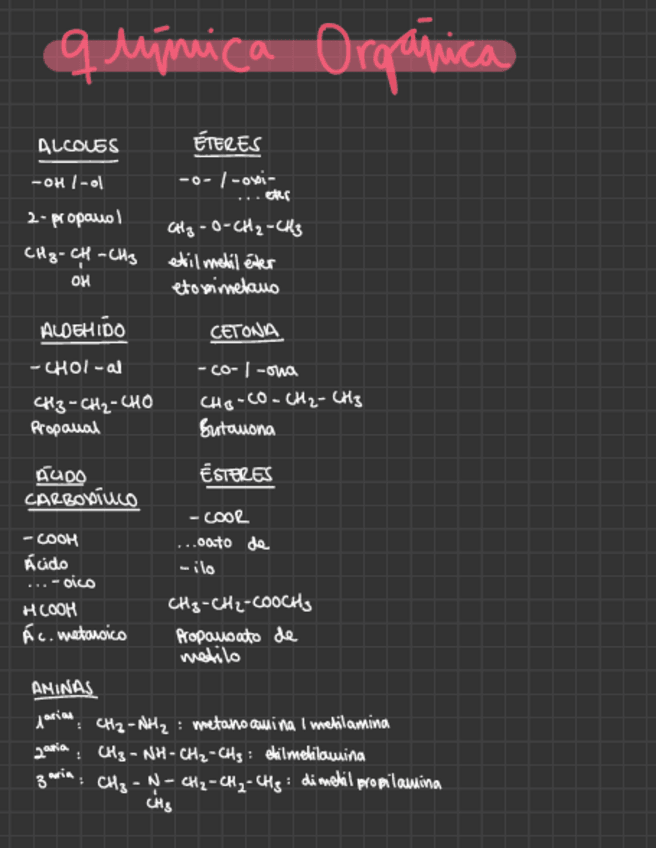 Química Orgánica
ALCOLES
-OH / -ol
2-propanol
CH3-CH-CH3
OH
ÉTERES
-O- / -oxi-
...eter
CH3-O-CH2-CH3
etil metil éter
etoximetano
ALDEHÍDO
-CHO/ -al
CH3-CH2-CHO
Propanal
CETONA
-CO- / -ona
CH3-CO-CH2-CH3
Butanona
ÁCIDO
CARBOXÍLICO
-COOH
Ácido
...-oico
HCOOH
Ác. metanoico
ÉSTERES
-COOR
...oato de
-ilo
CH3-CH2-COOCH3
Propanoato de
metilo
AMINAS
1arias: CH2-NH2: metanoamina / metilamina
2aria: CH3-NH-CH2-CH3: etilmetilamina
3aria: CH3-N-CH2-CH2-CH3: dimetilpropilamina
CH3